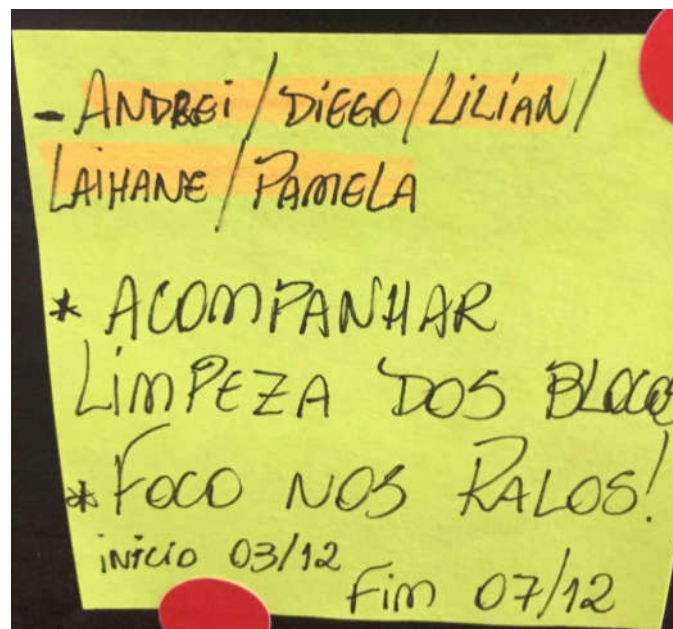 - ANDREI / DIEGO / LILIAN /
LAIHANE / PAMELA
* ACOMPANHAR
LIMPEZA DOS BLOCOS
* FOCO NOS RALOS!
INICIO 03/12
FIM 07/12